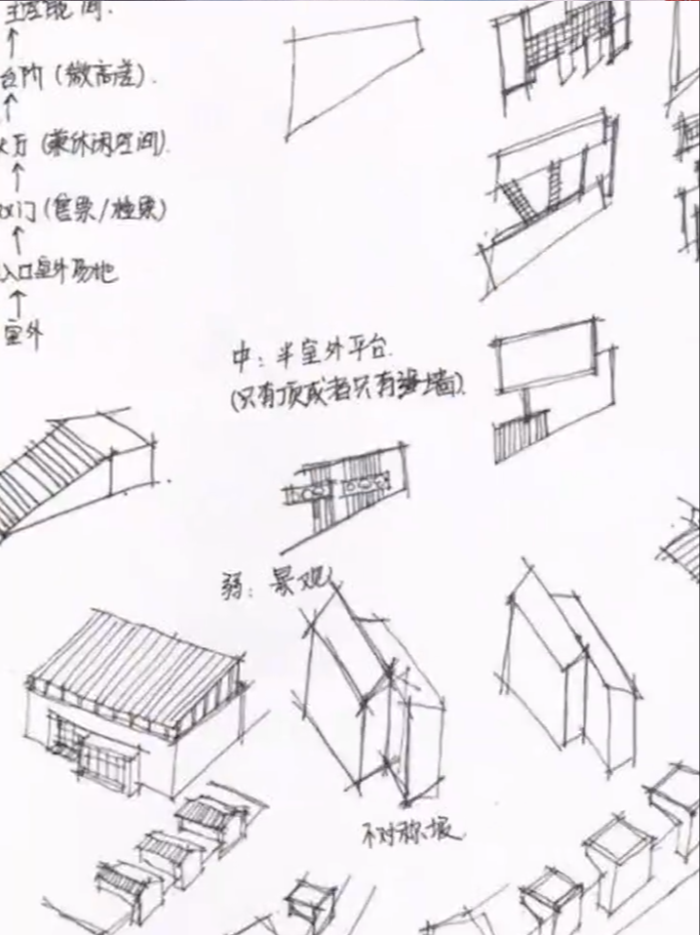 台阶(微高差).
(兼休闲空间).
门(售票/检票)
入口室外场地
室外
中:半室外平台.
(只有顶或者只有墙).
弱:景观
不对称坡.